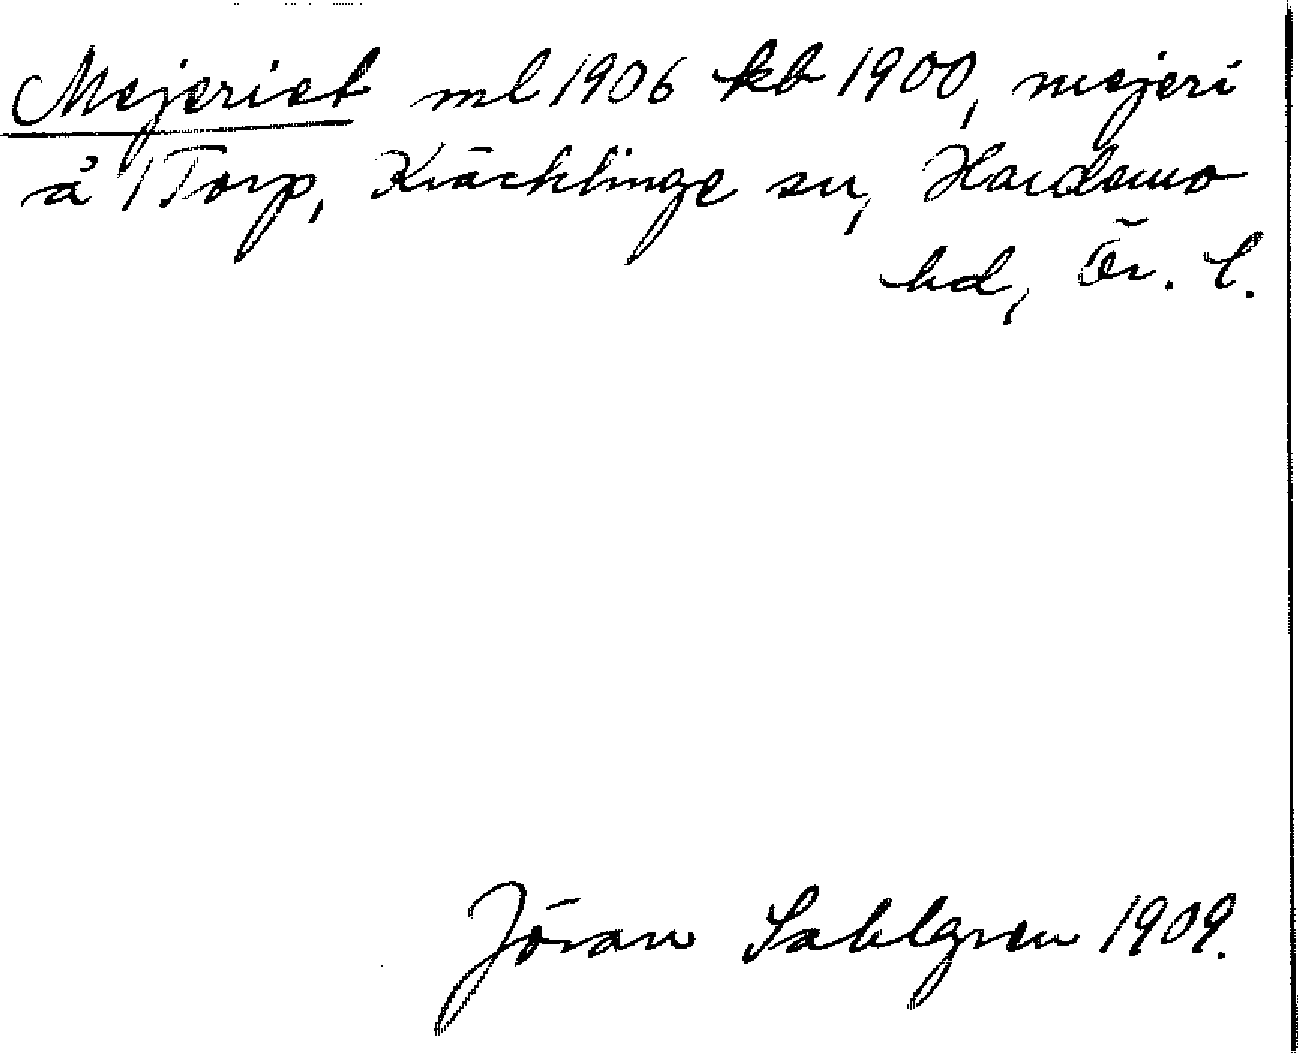 Mejeriet ml 1906 kb 1900, mejeri
å 1 Torp, Kräcklinge sn, Hardemo
hd, Ör. l.
Jöran Sahlgren 1909.